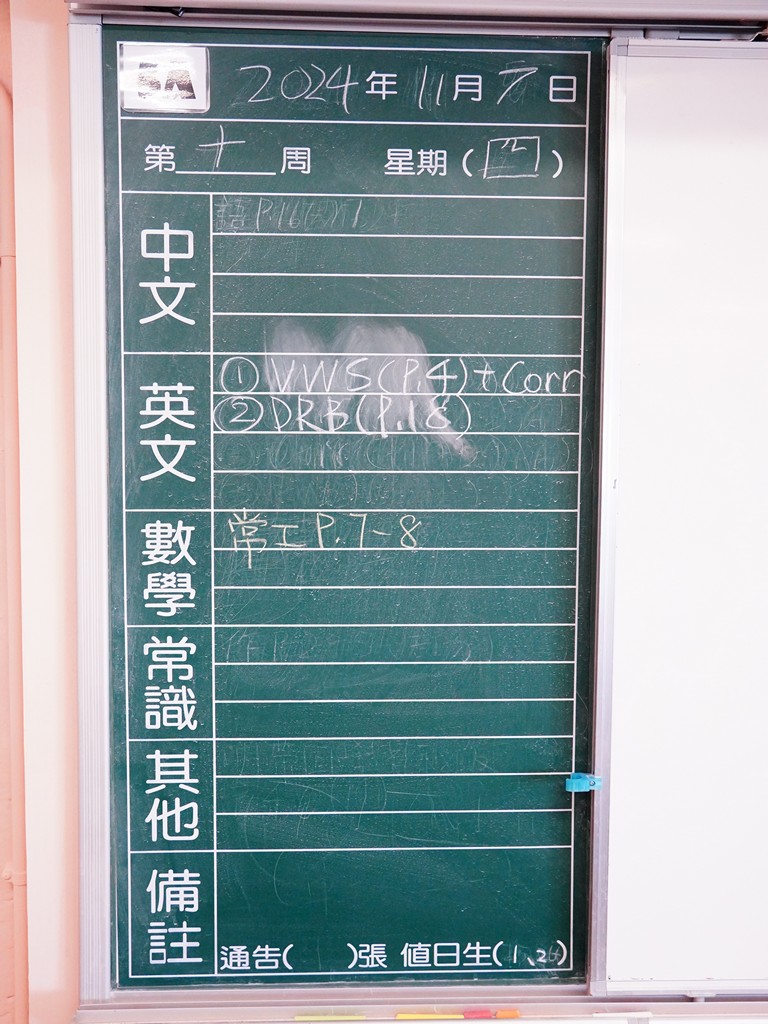 2024年11月7日
第十周 星期(四)
中文
英文
① VWS(P.4)+Corr
② DRB(P.18)
數學
常工P.7-8
常識
其他
備註
通告( )張 值日生(